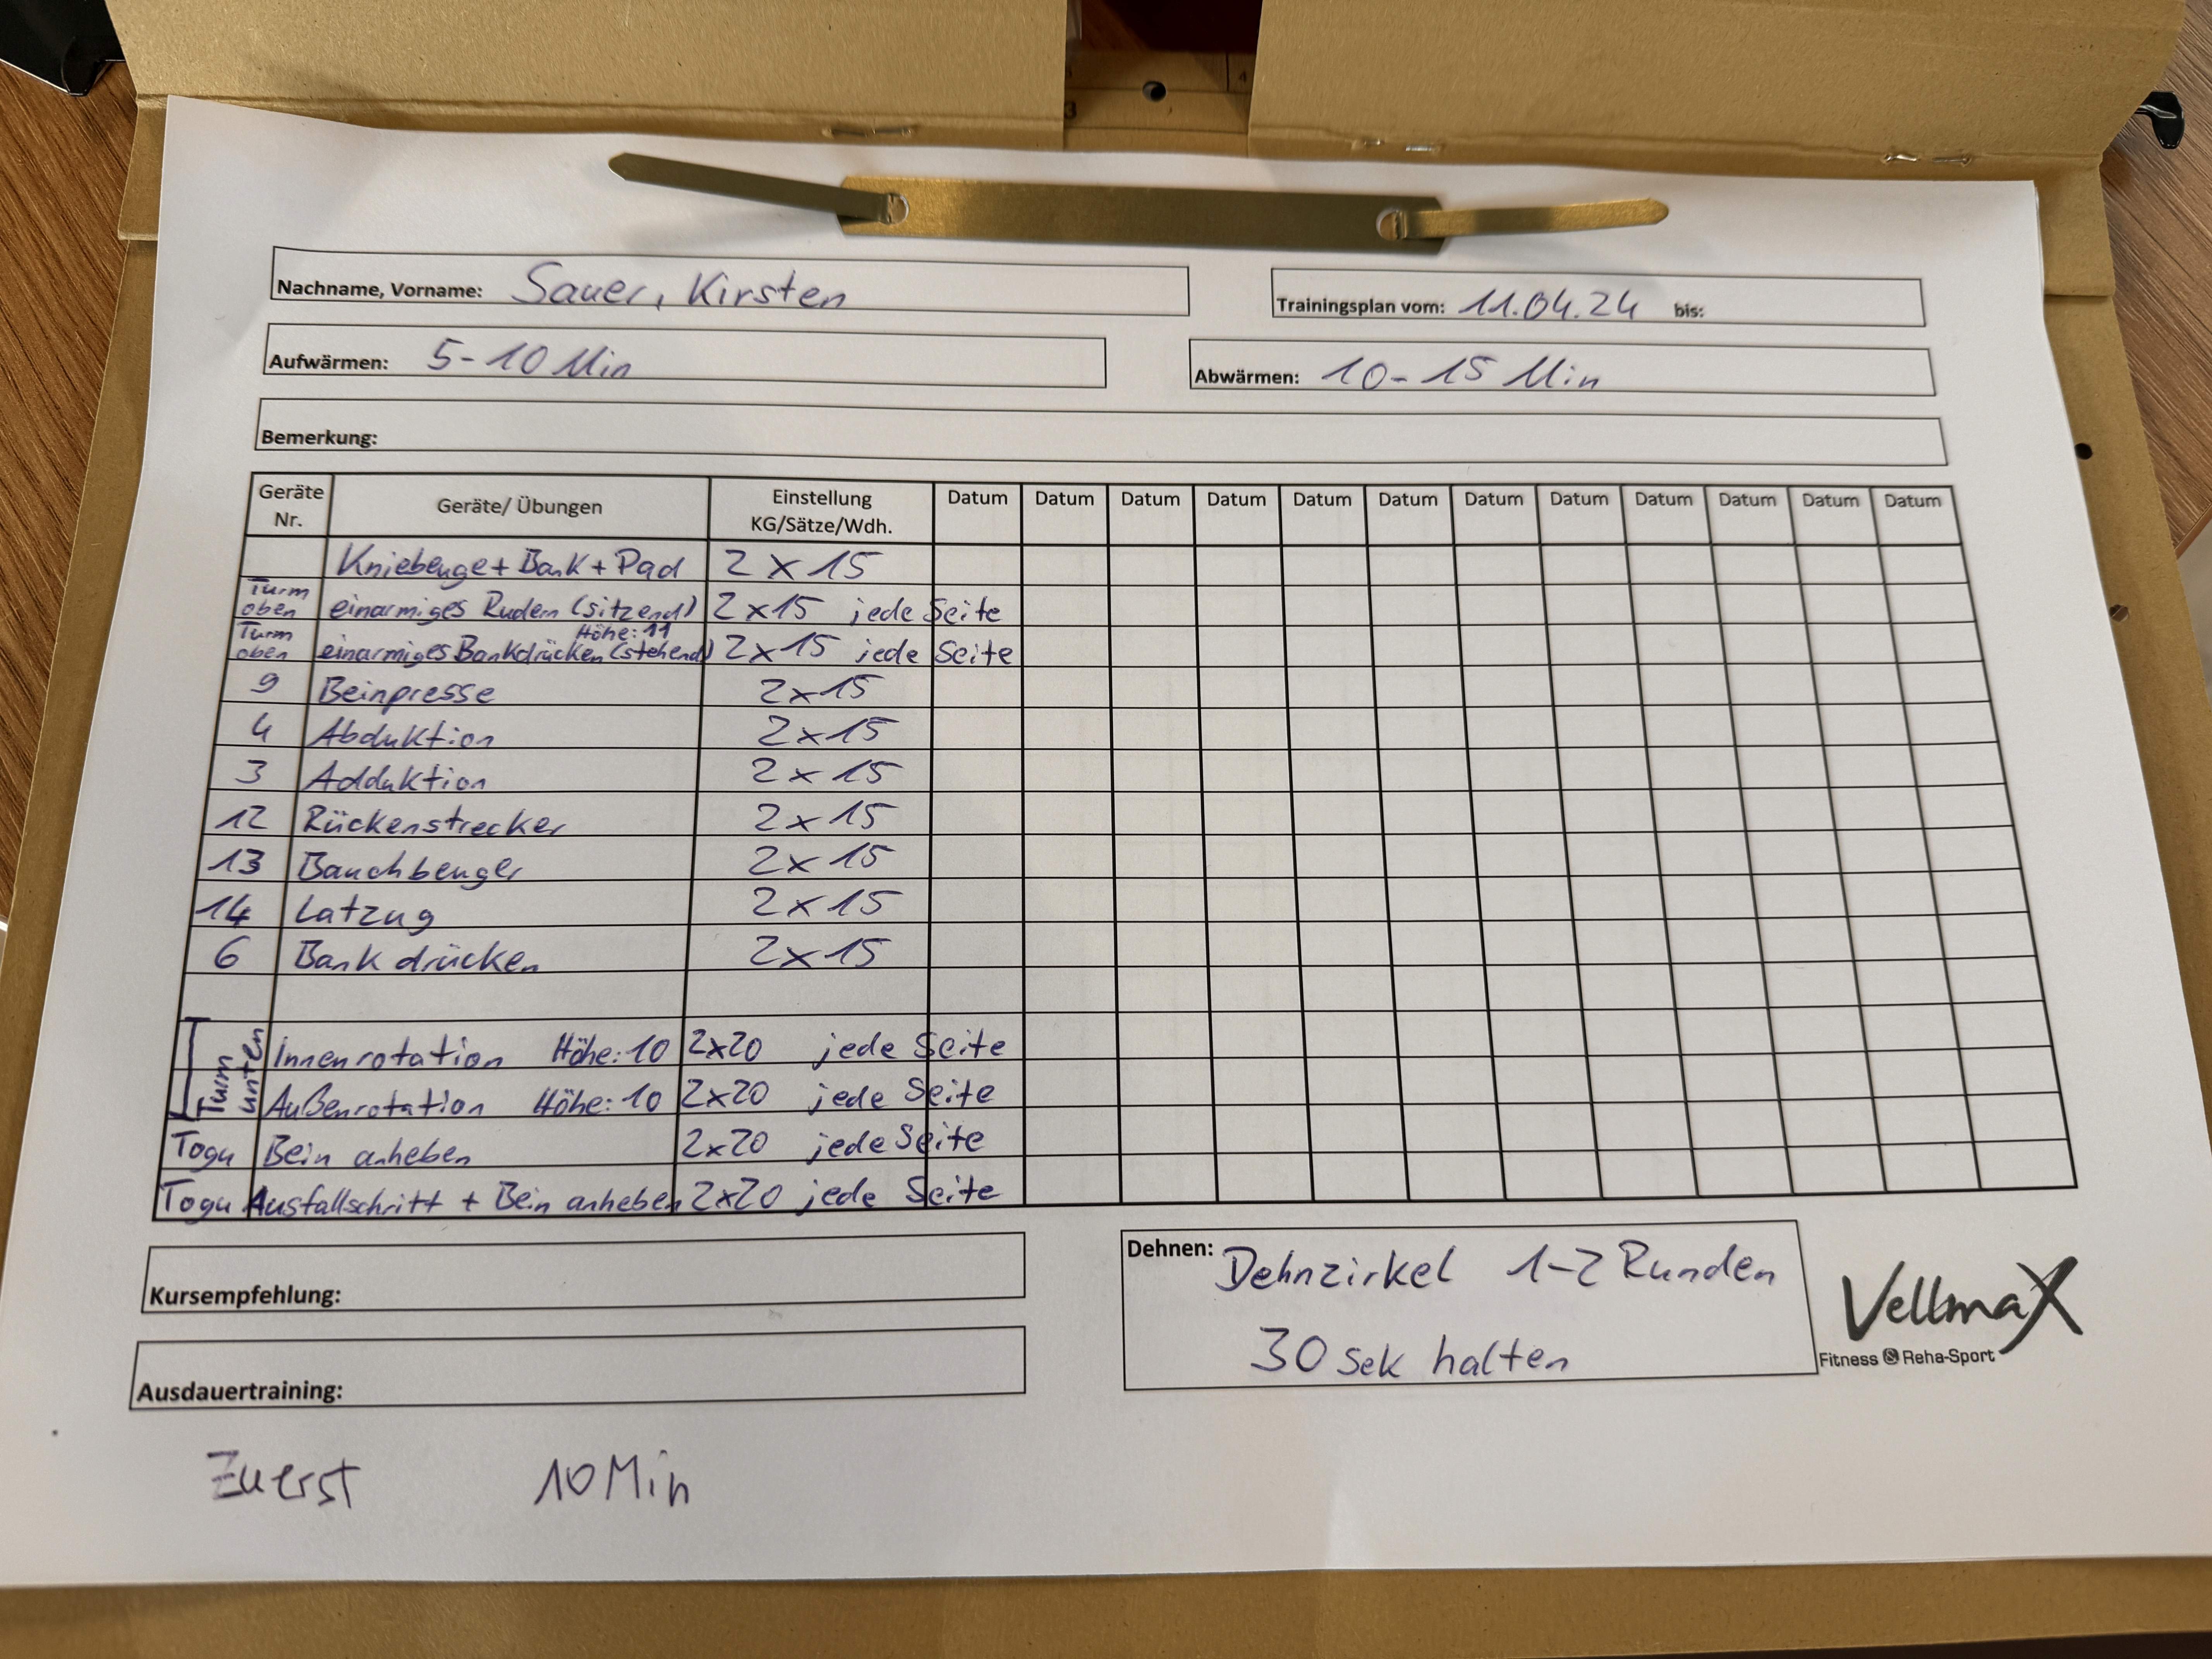 Nachname, Vorname: Sauer, Kirsten
Trainingsplan vom: 11.04.24 bis:
Aufwärmen: 5-10 Min
Abwärmen: 10-15 Min
Bemerkung:
Geräte Nr. Geräte/ Übungen Einstellung KG/Sätze/Wdh. Datum Datum Datum Datum Datum Datum Datum Datum Datum Datum Datum Datum
Kniebeuge + Bank + Pad 2 x 15
Turm oben einarmiges Rudern (sitzend) 2x15 jede Seite
Turm oben einarmiges Bankdrücken (stehend) Höhe: 11 2x15 jede Seite
9 Beinpresse 2x15
4 Abduktion 2x15
3 Adduktion 2x15
12 Rückenstrecker 2x15
13 Bauchbeuger 2x15
14 Latzug 2x15
6 Bankdrücken 2x15
Turm unten
Innenrotation Höhe: 10 2x20 jede Seite
Außenrotation Höhe: 10 2x20 jede Seite
Togu Bein anheben 2x20 jede Seite
Togu Ausfallschritt + Bein anheben 2x20 jede Seite
Kursempfehlung:
Dehnen: Dehnzirkel 1-2 Runden
30 sek halten
VellmaX
Fitness & Reha-Sport
Ausdauertraining:
Zuerst 10 Min